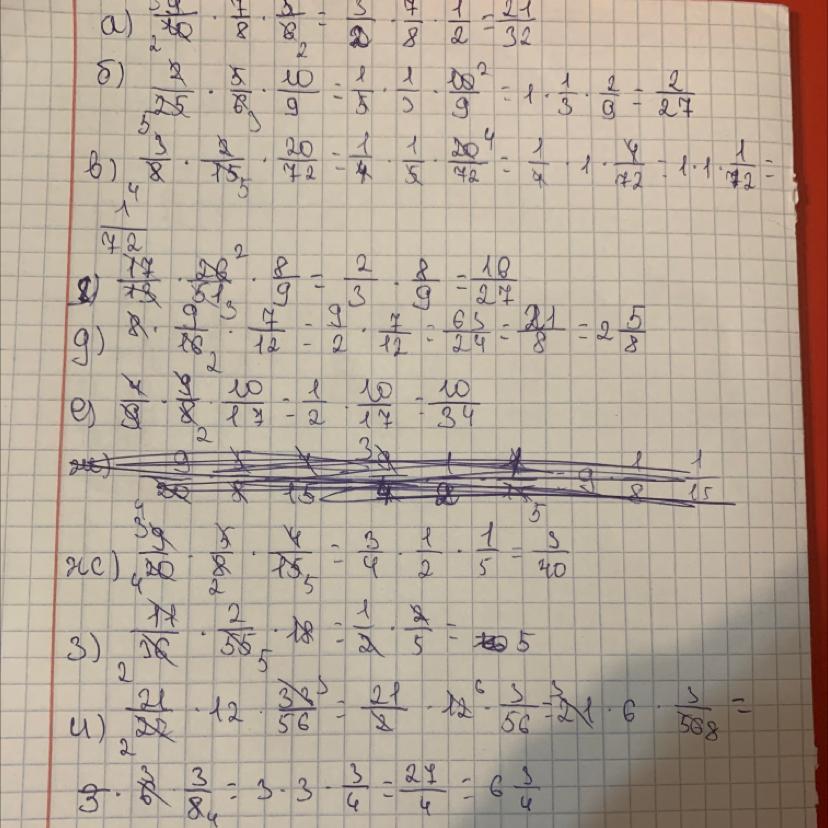 а) 9/10 · 7/8 · 5/6 = 3/2 · 7/8 · 1/2 = 21/32
б) 2/25 · 5/6 · 10/9 = 1/5 · 1/3 · 10/9 = 1 · 1/3 · 2/9 = 2/27
в) 3/8 · 2/15 · 20/72 = 1/4 · 1/5 · 20/72 = 1/4 · 1 · 4/72 = 1 · 1 · 1/72 =
1/72
г) 17/78 · 26/51 · 8/9 = 2/3 · 8/9 = 16/27
д) 8 · 9/16 · 7/12 = 9/2 · 7/12 = 63/24 = 21/8 = 2 5/8
е) 4/9 · 9/8 · 10/17 = 1/2 · 10/17 = 10/34
ж) 9/20 · 5/8 · 4/15 = 3/4 · 1/2 · 1/5 = 3/40
з) 17/36 · 2/55 · 18 = 1/2 · 2/5 = 5
и) 21/22 · 12 · 33/56 = 21/2 · 12 · 3/56 = 21 · 6 · 3/56 =
3 · 6 · 3/8 = 3 · 3 · 3/4 = 27/4 = 6 3/4